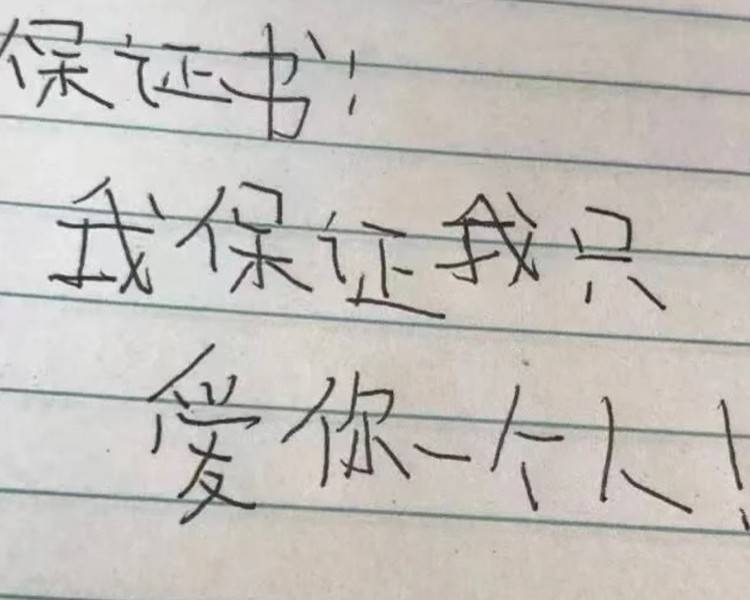 保证书!
我保证我只
爱你一个人!